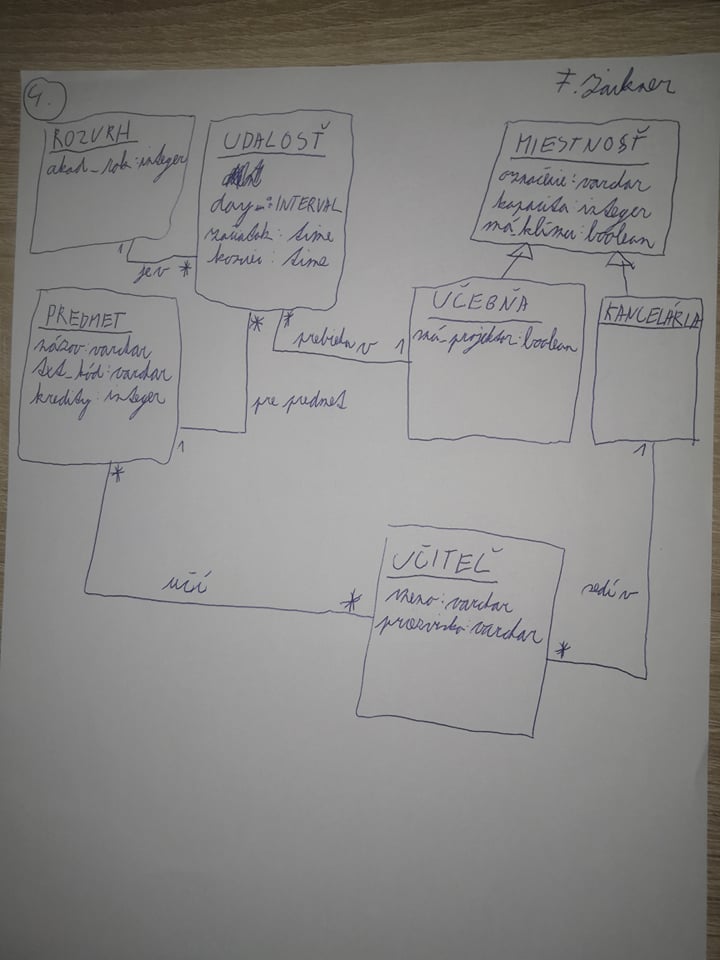 4.
F. Jarkner
ROZVRH
akad_rok: integer
UDALOSŤ
day : INTERVAL
začiatok : time
koniec : time
MIESTNOSŤ
označenie: varchar
kapacita: integer
má klímu: boolean
1
je v
*
PREDMET
názov: varchar
text_kód: varchar
kredity: integer
*
*
prebieha v
1
UČEBŇA
má_projektor: boolean
KANCELÁRIA
pre predmet
1
1
*
učí
*
UČITEĽ
meno: varchar
priezvisko: varchar
sedí v
*